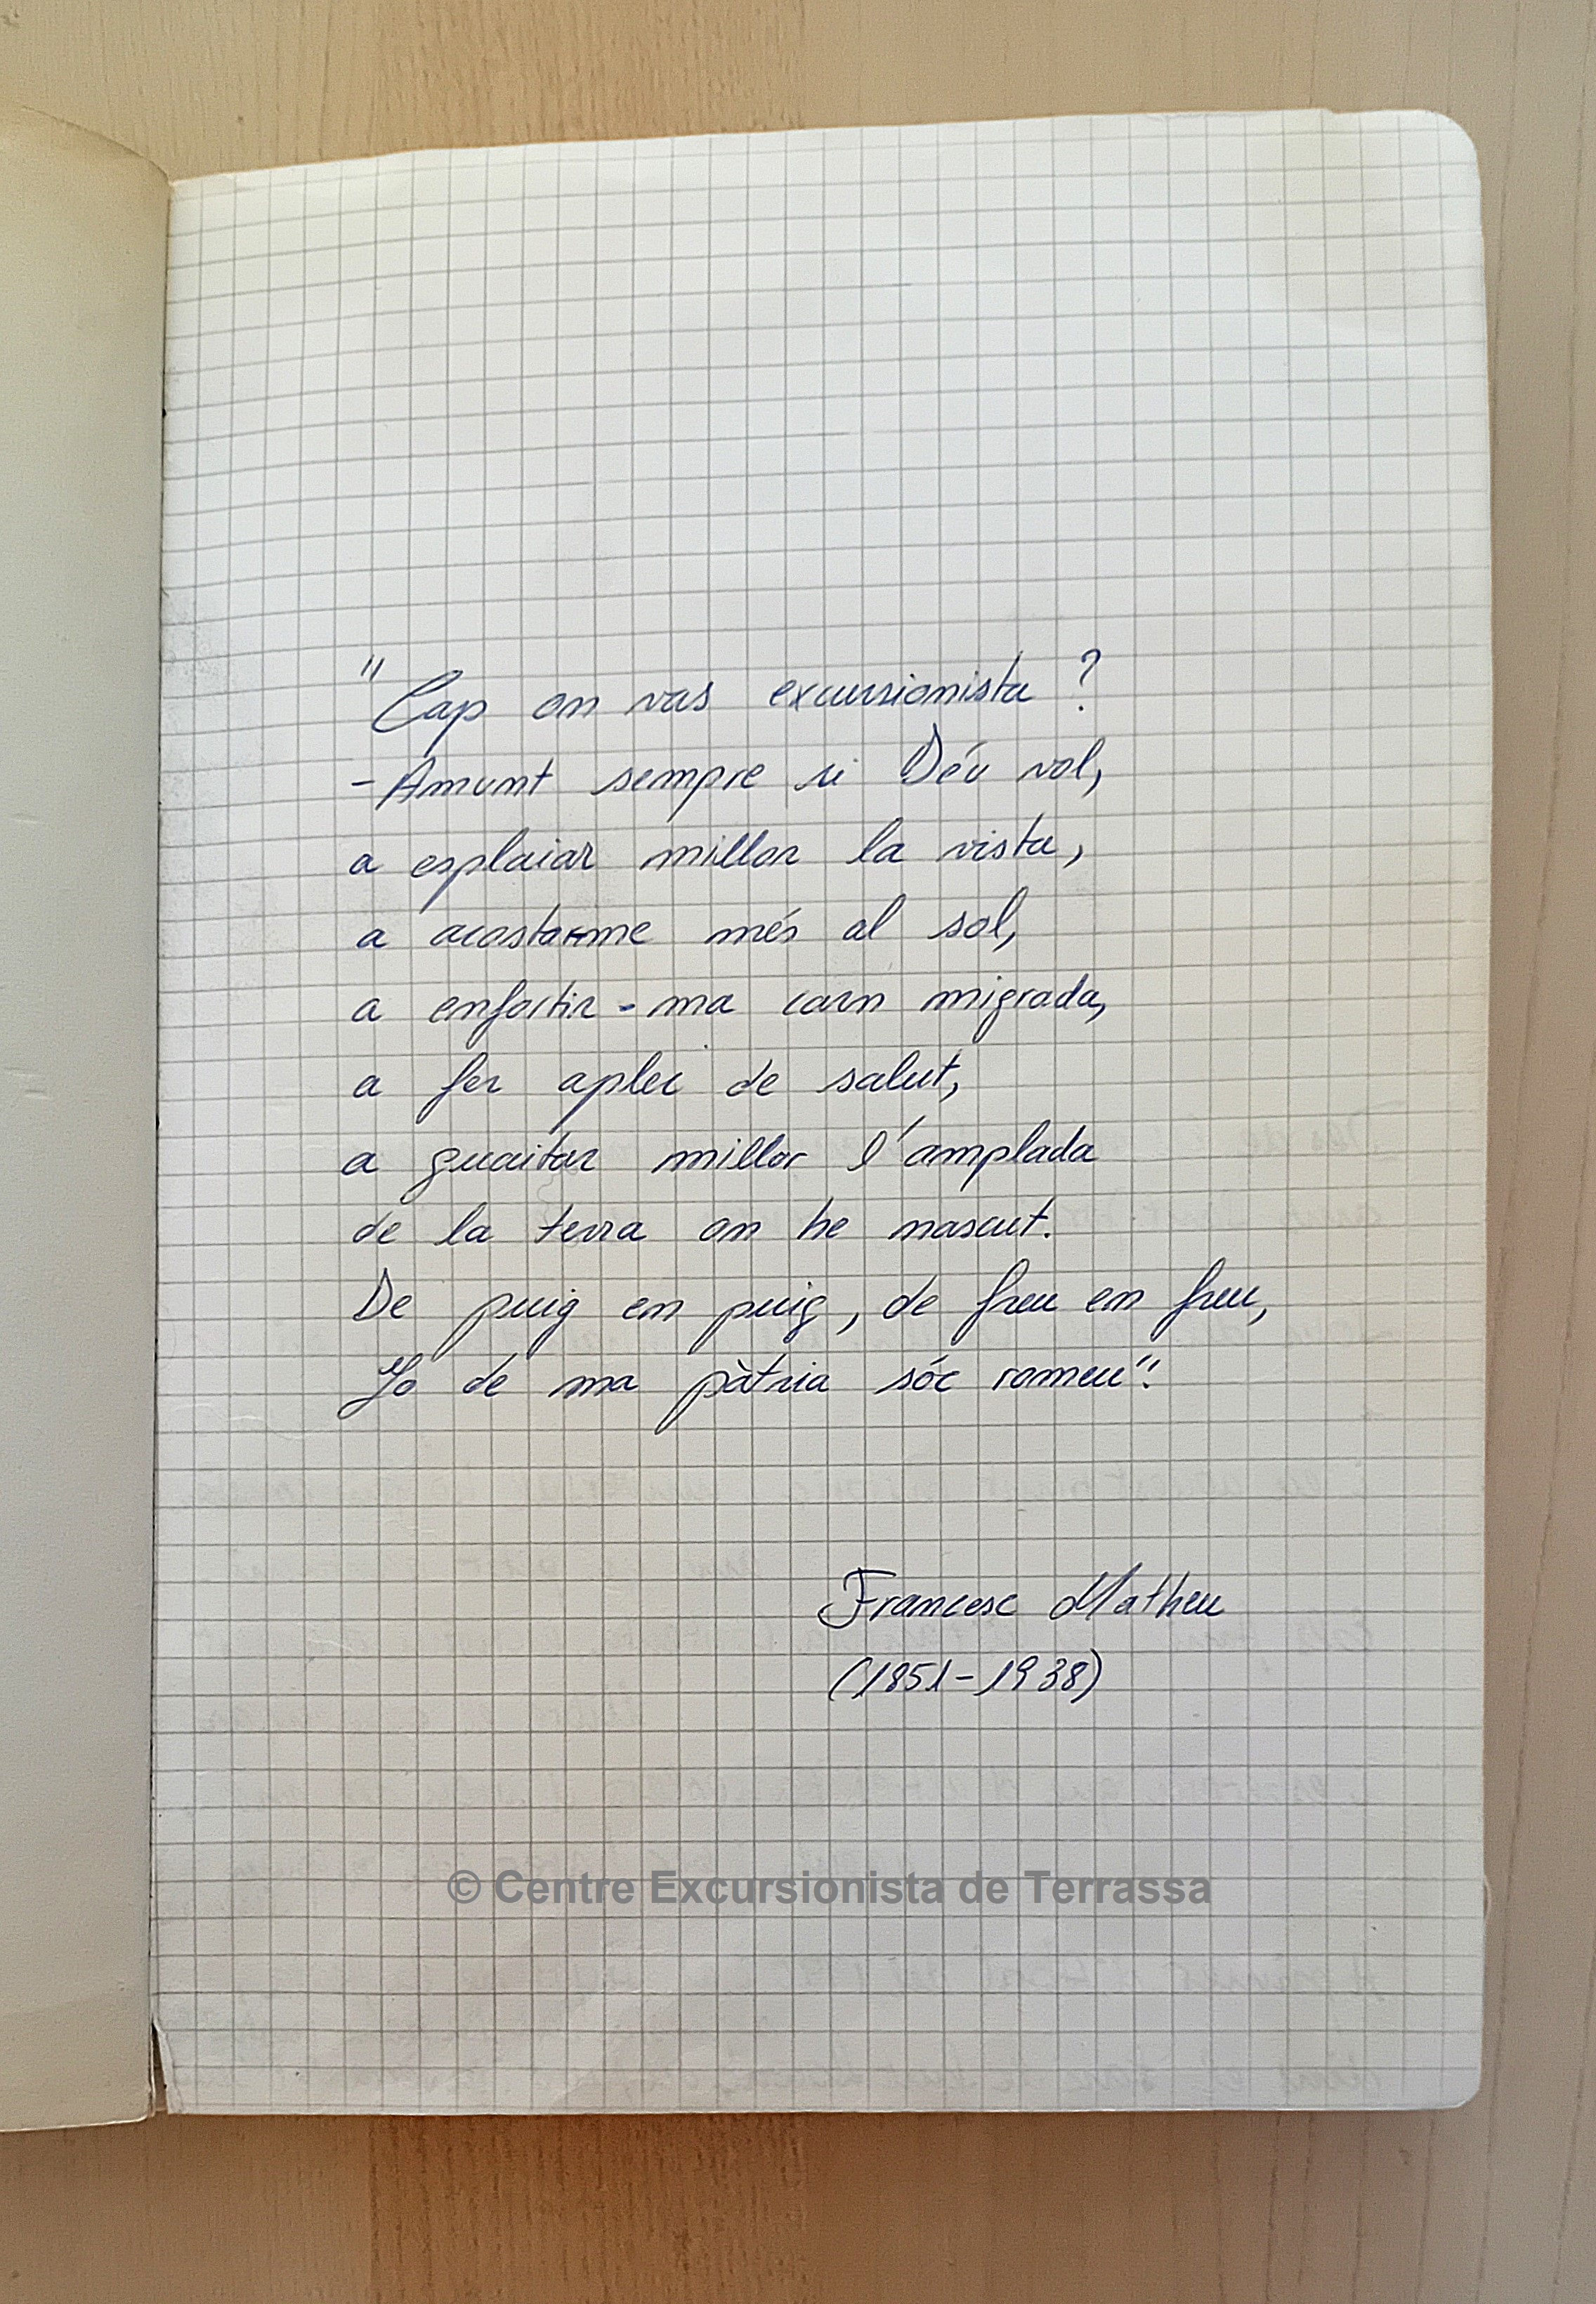 "Cap on vas excursionista?
- Amunt sempre si Déu vol,
a esplaiar millor la vista,
a acostar-me més al sol,
a enfortir-ma carn migrada,
a fer aplec de salut,
a guaitar millor l'amplada
de la terra on he nascut.
De puig en puig, de freu en freu,
Jo de ma pàtria sóc romeu".
Francesc Matheu
(1851-1938)
© Centre Excursionista de Terrassa